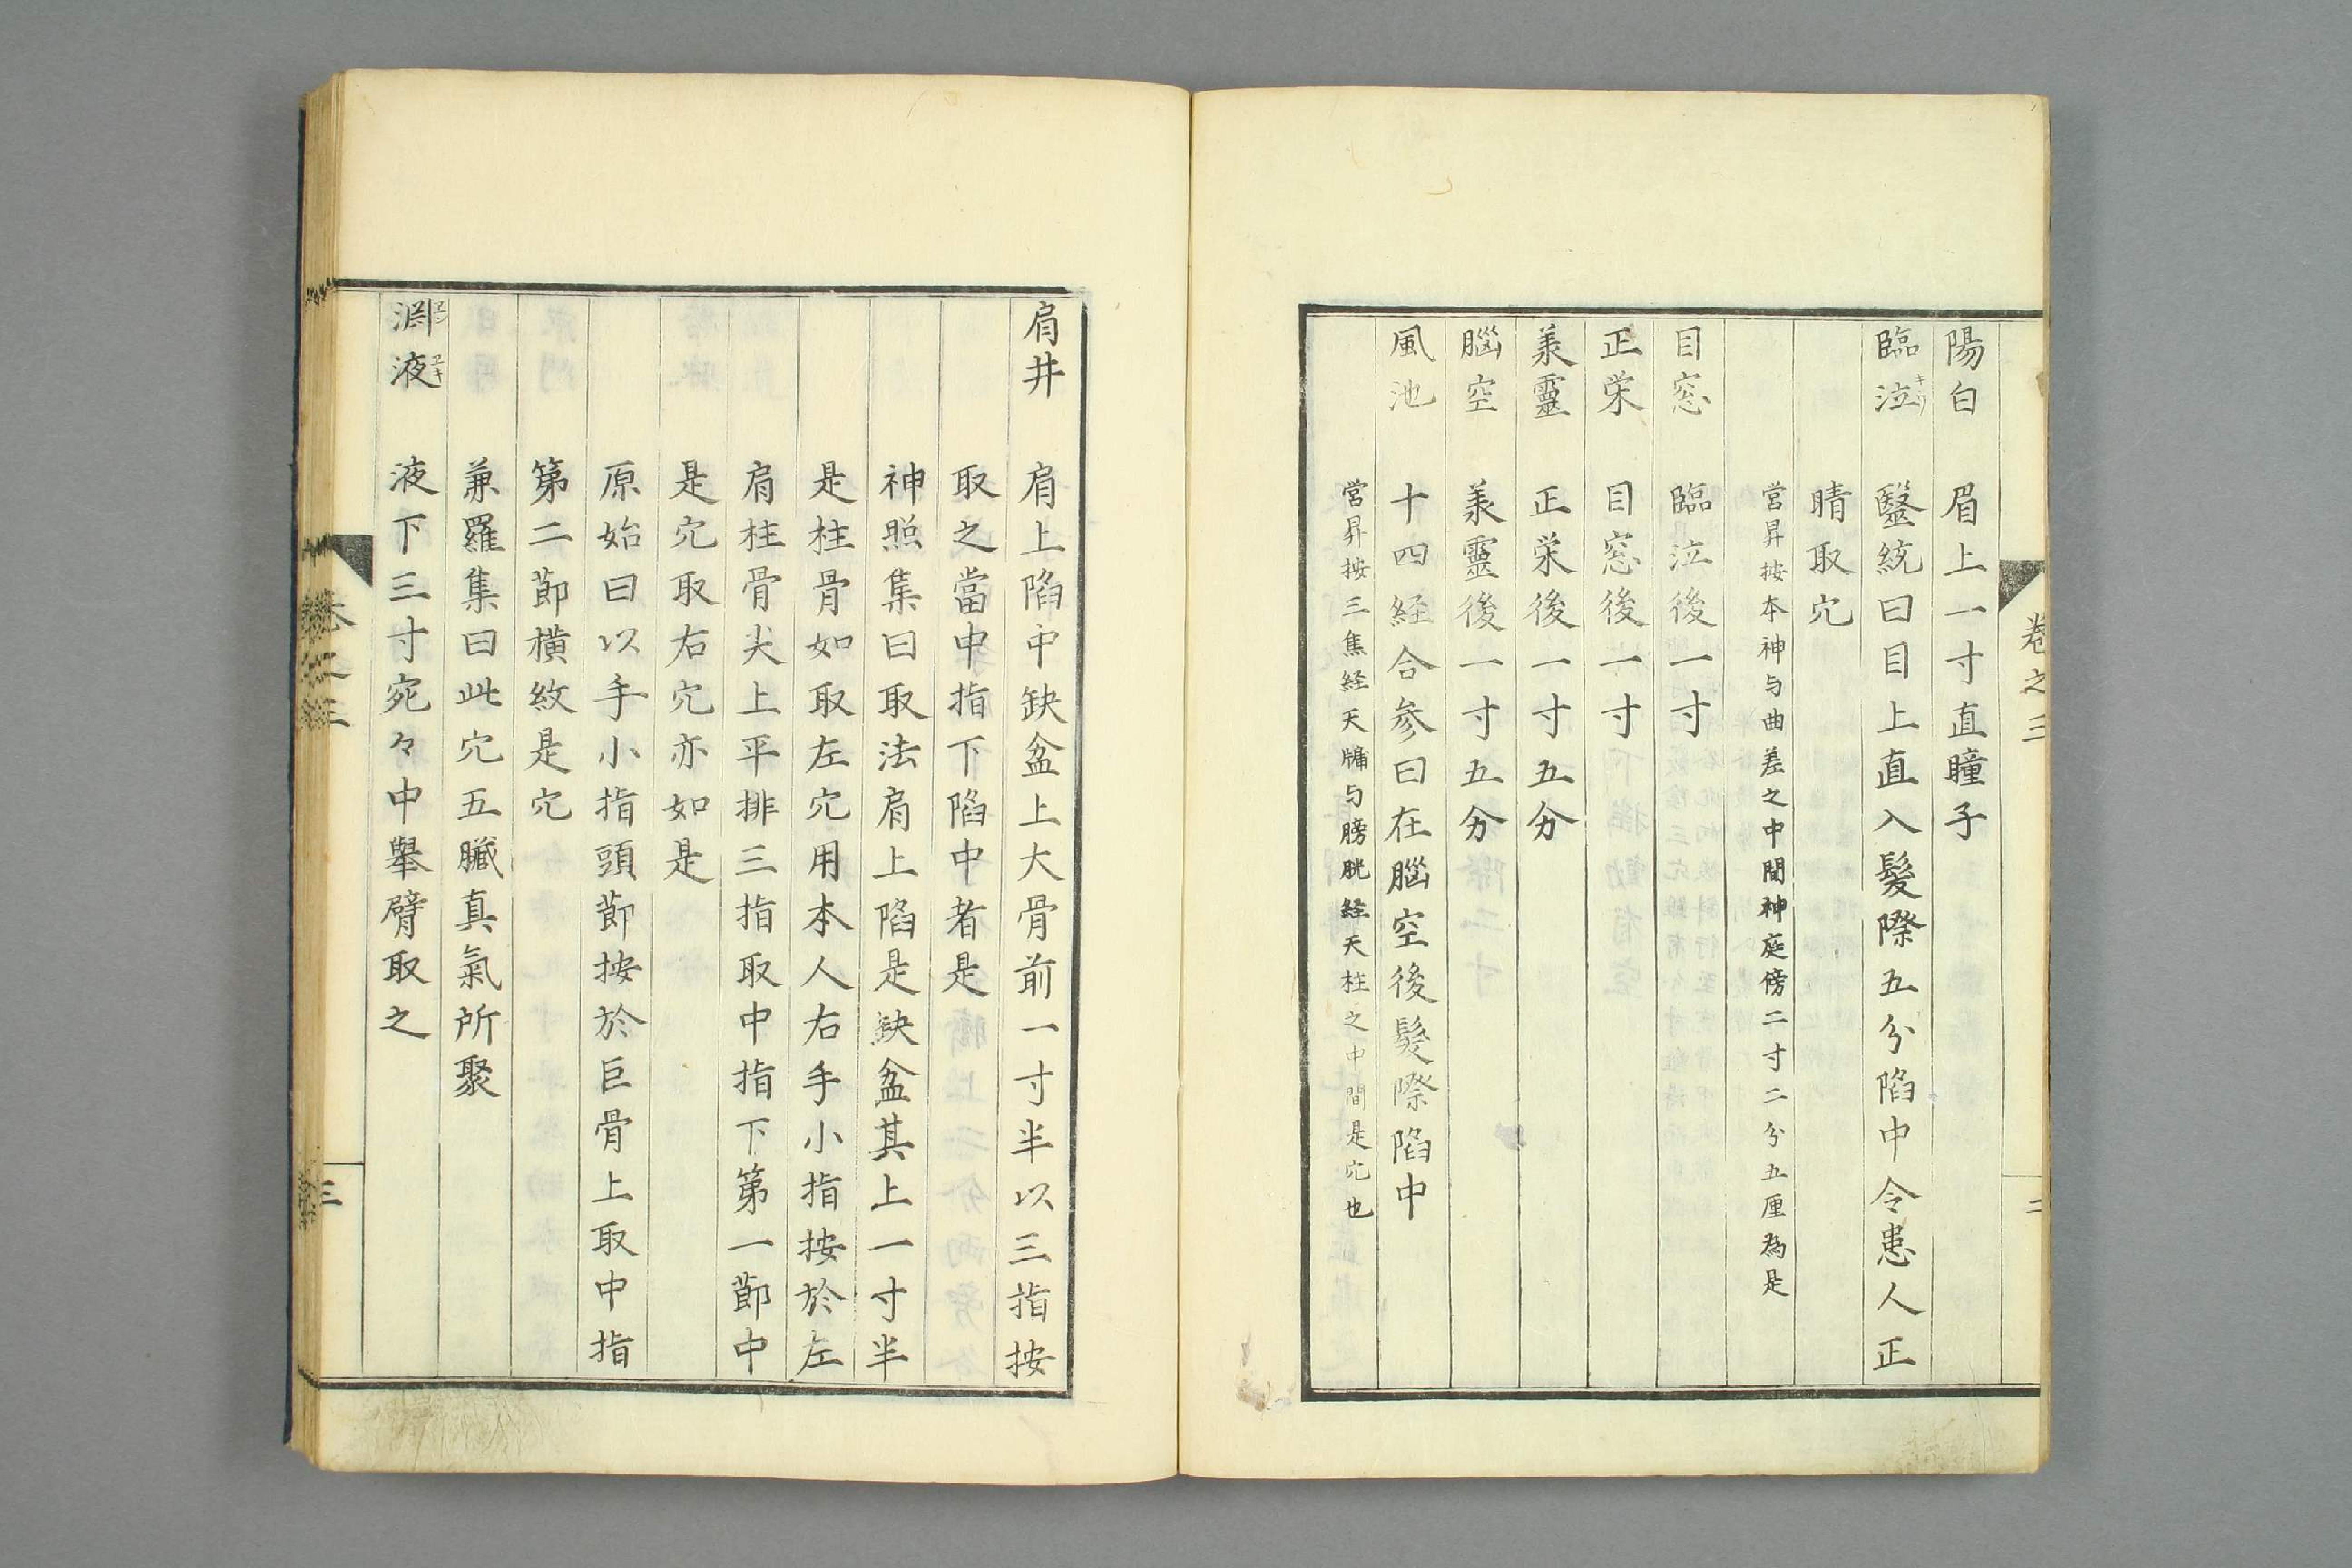 卷之三
二
陽白 眉上一寸直瞳子
臨泣 醫統曰目上直入髮際五分陷中令患人正
睛取穴
営昇按本神与曲差之中間神庭傍二寸二分五厘為是
目窓 臨泣後一寸
正栄 目窓後一寸
義靈 正栄後一寸五分
腦空 義靈後一寸五分
風池 十四経合参曰在腦空後髮際陷中
営昇按三焦経天牖与膀胱経天柱之中間是穴也
肩井 肩上陷中缺盆上大骨前一寸半以三指按
取之當中指下陷中者是
神照集曰取法肩上陷是缺盆其上一寸半
是柱骨如取左穴用本人右手小指按於左
肩柱骨尖上平排三指取中指下第一節中
是穴取右穴亦如是
原始曰以手小指頭節按於巨骨上取中指
第二節横紋是穴
兼羅集曰此穴五臓真氣所聚
淵液 液下三寸宛々中舉臂取之
卷之三
三